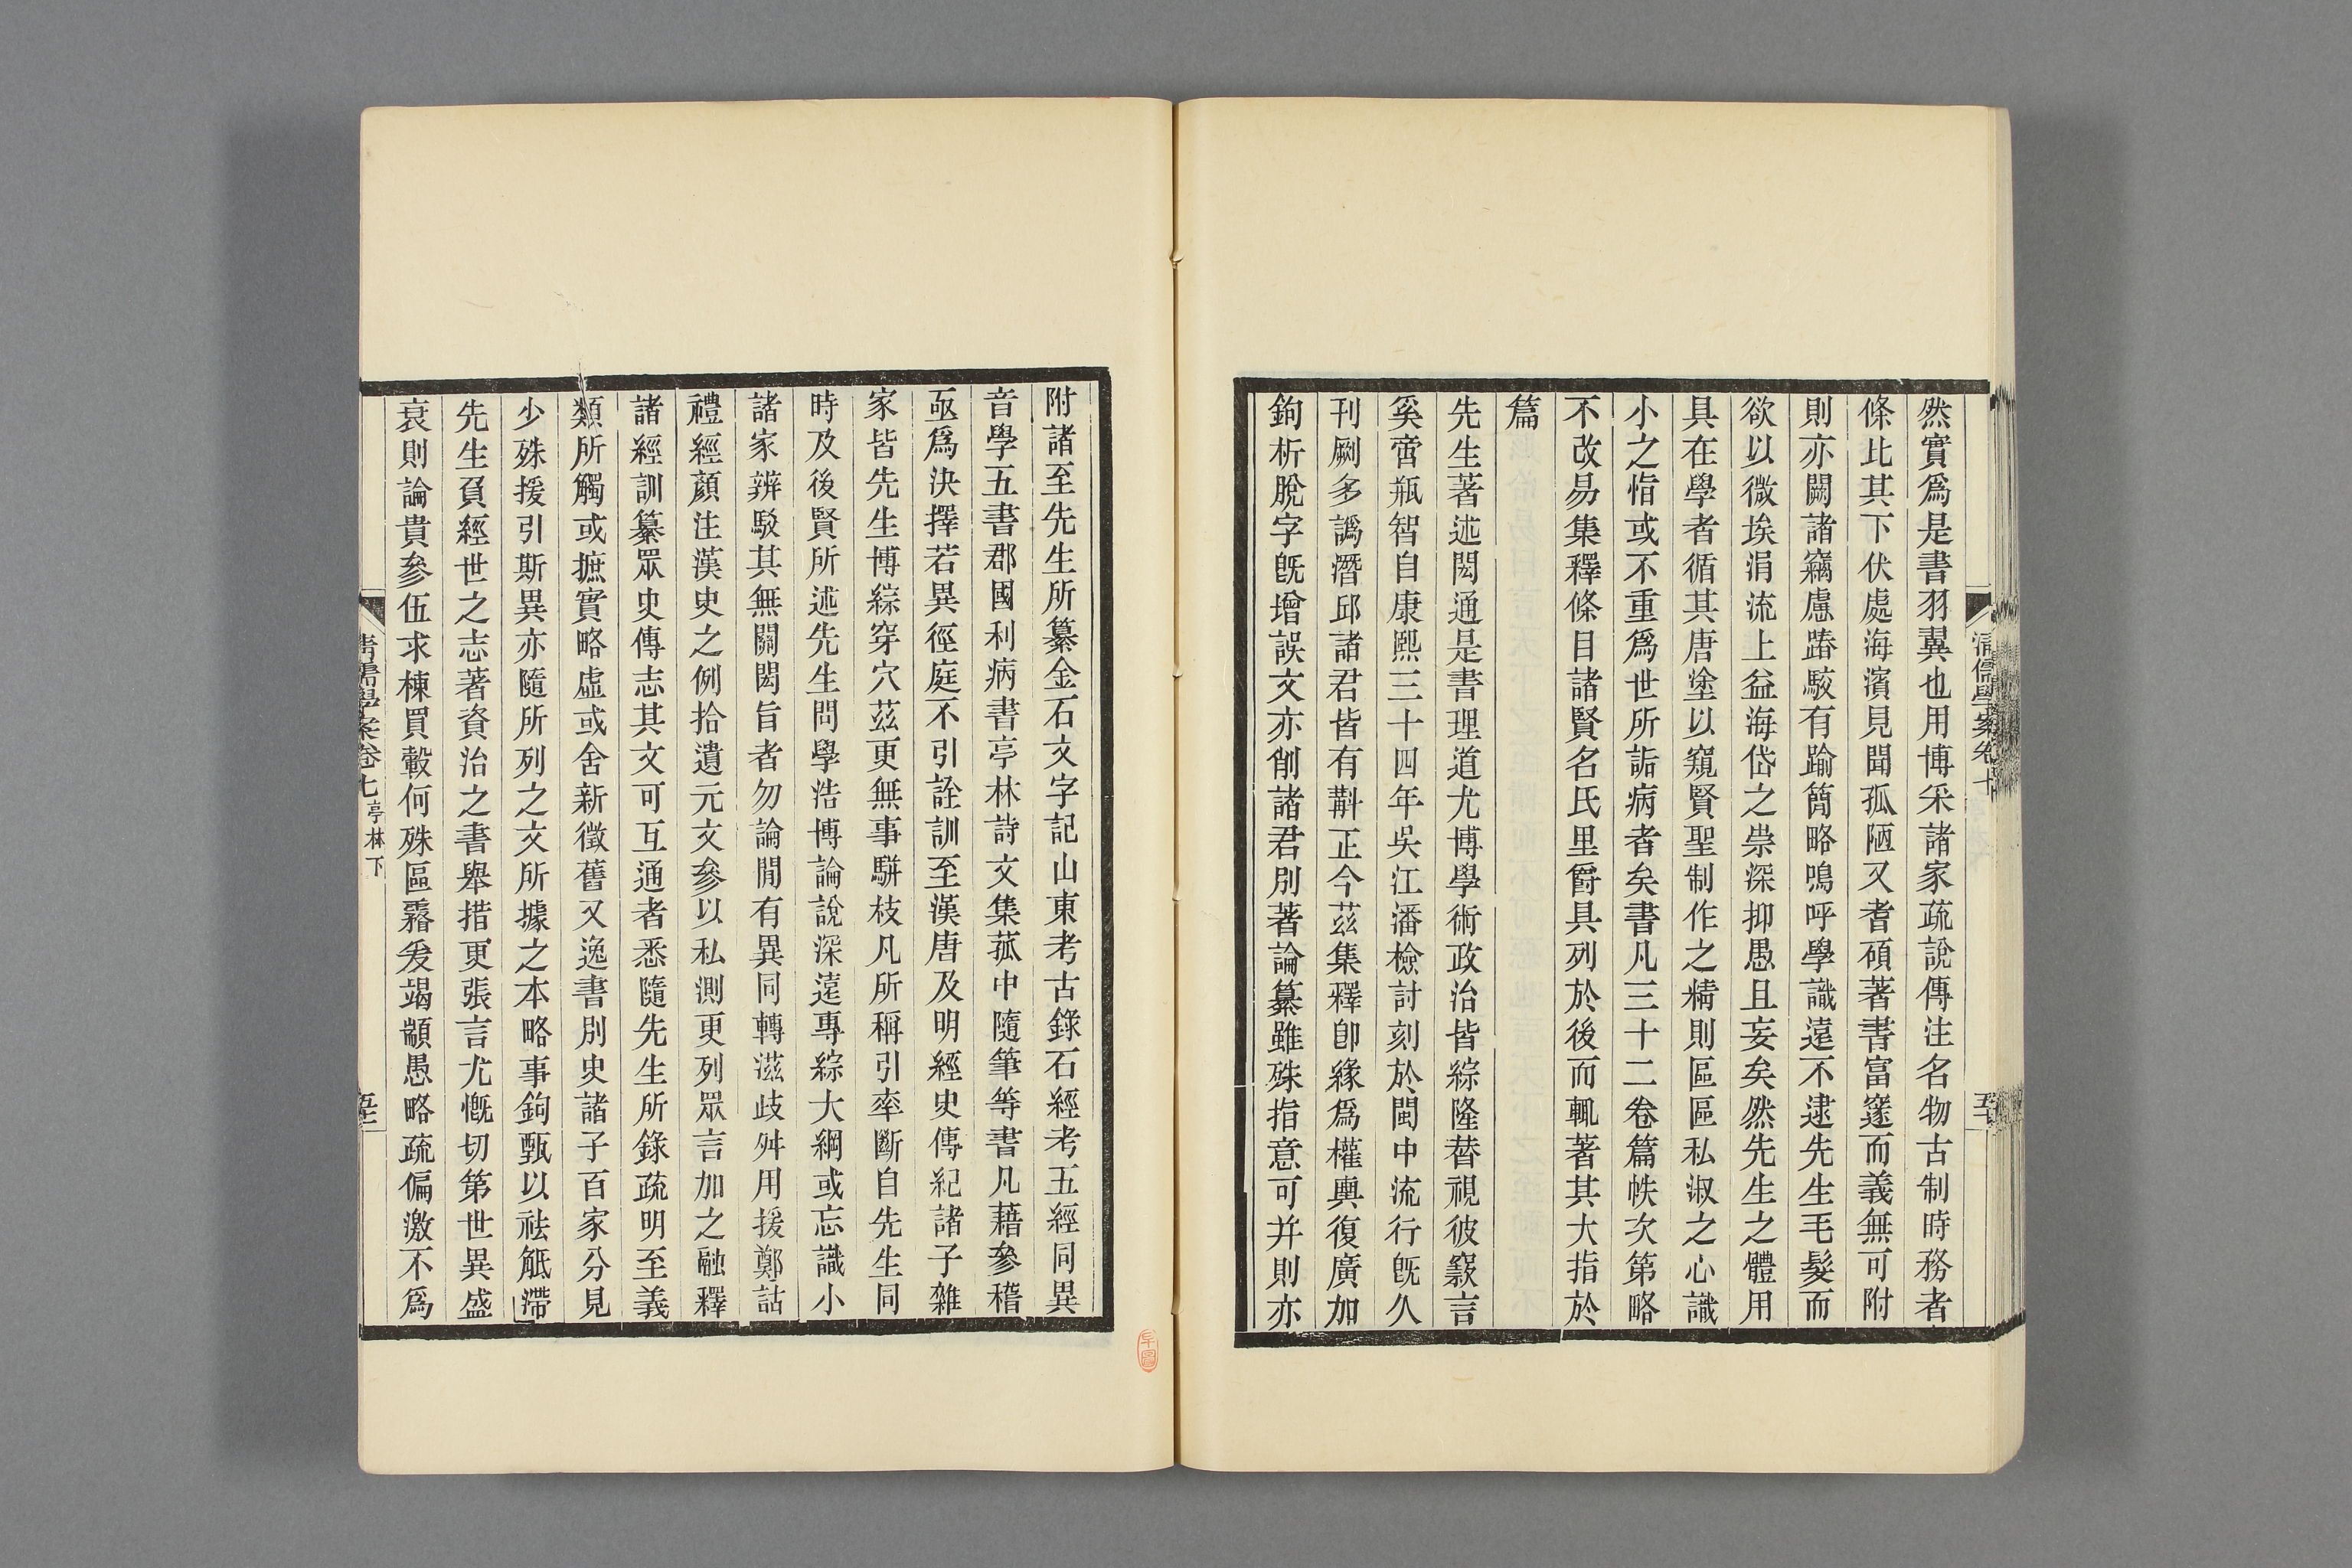 然實爲是書羽翼也用博采諸家疏說傳注名物古制時務者
條比其下伏處海濱見聞孤陋又耆碩著書富邃而義無可附
則亦闕諸竊慮踳駮有踰簡略嗚呼學識遠不逮先生毛髮而
欲以微埃涓流上益海岱之崇深抑愚且妄矣然先生之體用
具在學者循其唐塗以窺賢聖制作之精則區區私淑之心識
小之恉或不重爲世所詬病者矣書凡三十二卷篇帙次第略
不改易集釋條目諸賢名氏里爵具列於後而輒著其大指於
篇
先生著述閎通是書理道尤博學術政治皆綜隆替視彼窾言
奚啻瓶智自康熙三十四年吳江潘檢討刻於閩中流行旣久
刊劂多譌潛邱諸君皆有斠正今茲集釋卽緣爲權輿復廣加
鉤析脫字旣增誤文亦削諸君別著論纂雖殊指意可并則亦
附諸至先生所纂金石文字記山東考古錄石經考五經同異
音學五書郡國利病書亭林詩文集菰中隨筆等書凡藉參稽
亟爲決擇若異徑庭不引詮訓至漢唐及明經史傳紀諸子雜
家皆先生博綜穿穴茲更無事駢枝凡所稱引率斷自先生同
時及後賢所述先生問學浩博論說深遠專綜大綱或忘識小
諸家辨駁其無關閎旨者勿論閒有異同轉滋歧舛用援鄭詁
禮經顏注漢史之例拾遺元文參以私測更列眾言加之融釋
諸經訓纂眾史傳志其文可互通者悉隨先生所錄疏明至義
類所觸或摭實略虛或舍新徵舊又逸書別史諸子百家分見
少殊援引斯異亦隨所列之文所據之本略事鉤甄以袪觝滯
先生負經世之志著資治之書舉措更張言尤慨切第世異盛
衰則論貴參伍求棟買轂何殊區霿爰竭顓愚略疏偏激不爲
清儒學案卷七 亭林下